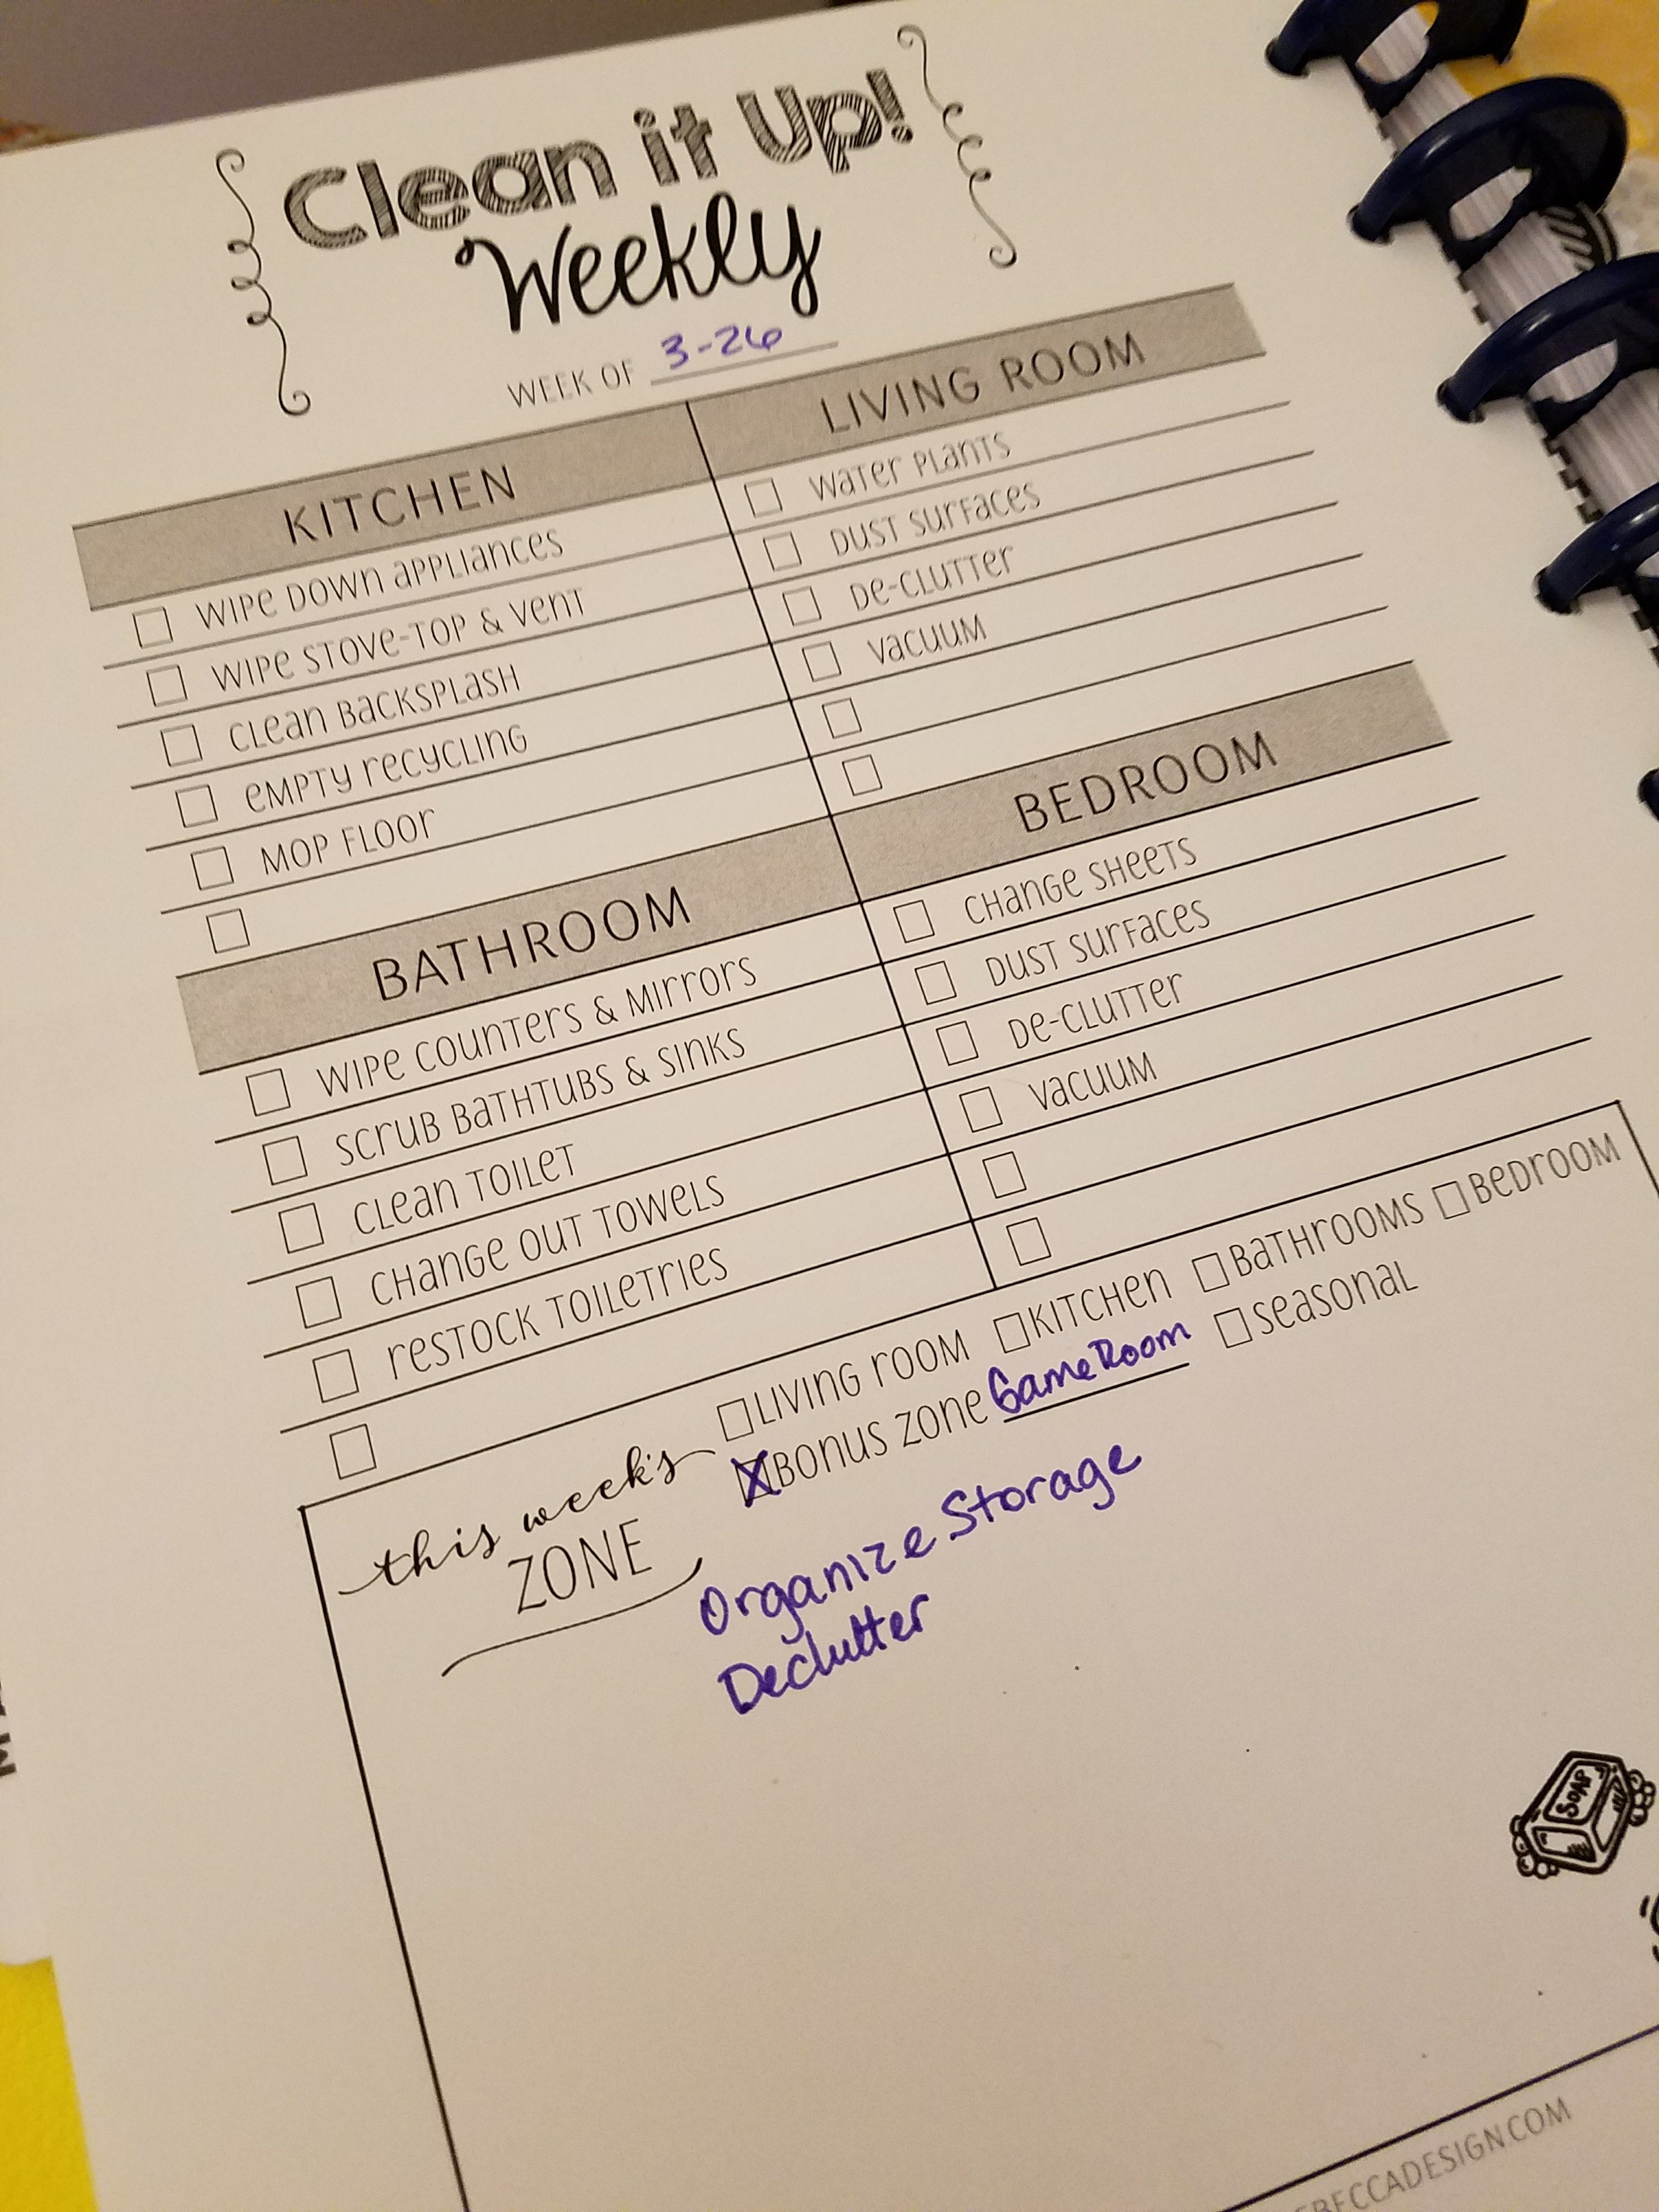 Clean it Up!
Weekly
WEEK OF 3-26
KITCHEN
WIPE DOWN APPLIANCES
WIPE STOVE-TOP & VENT
CLEAN BACKSPLASH
EMPTY RECYCLING
MOP FLOOR
LIVING ROOM
WATER PLANTS
DUST SURFACES
DE-CLUTTER
VACUUM
BATHROOM
WIPE COUNTERS & MIRRORS
SCRUB BATHTUBS & SINKS
CLEAN TOILET
CHANGE OUT TOWELS
RESTOCK TOILETRIES
BEDROOM
CHANGE SHEETS
DUST SURFACES
DE-CLUTTER
VACUUM
this week's
ZONE
LIVING ROOM KITCHEN BATHROOMS BEDROOM
X BONUS ZONE Game Room SEASONAL
Organize Storage
Declutter
SOAP